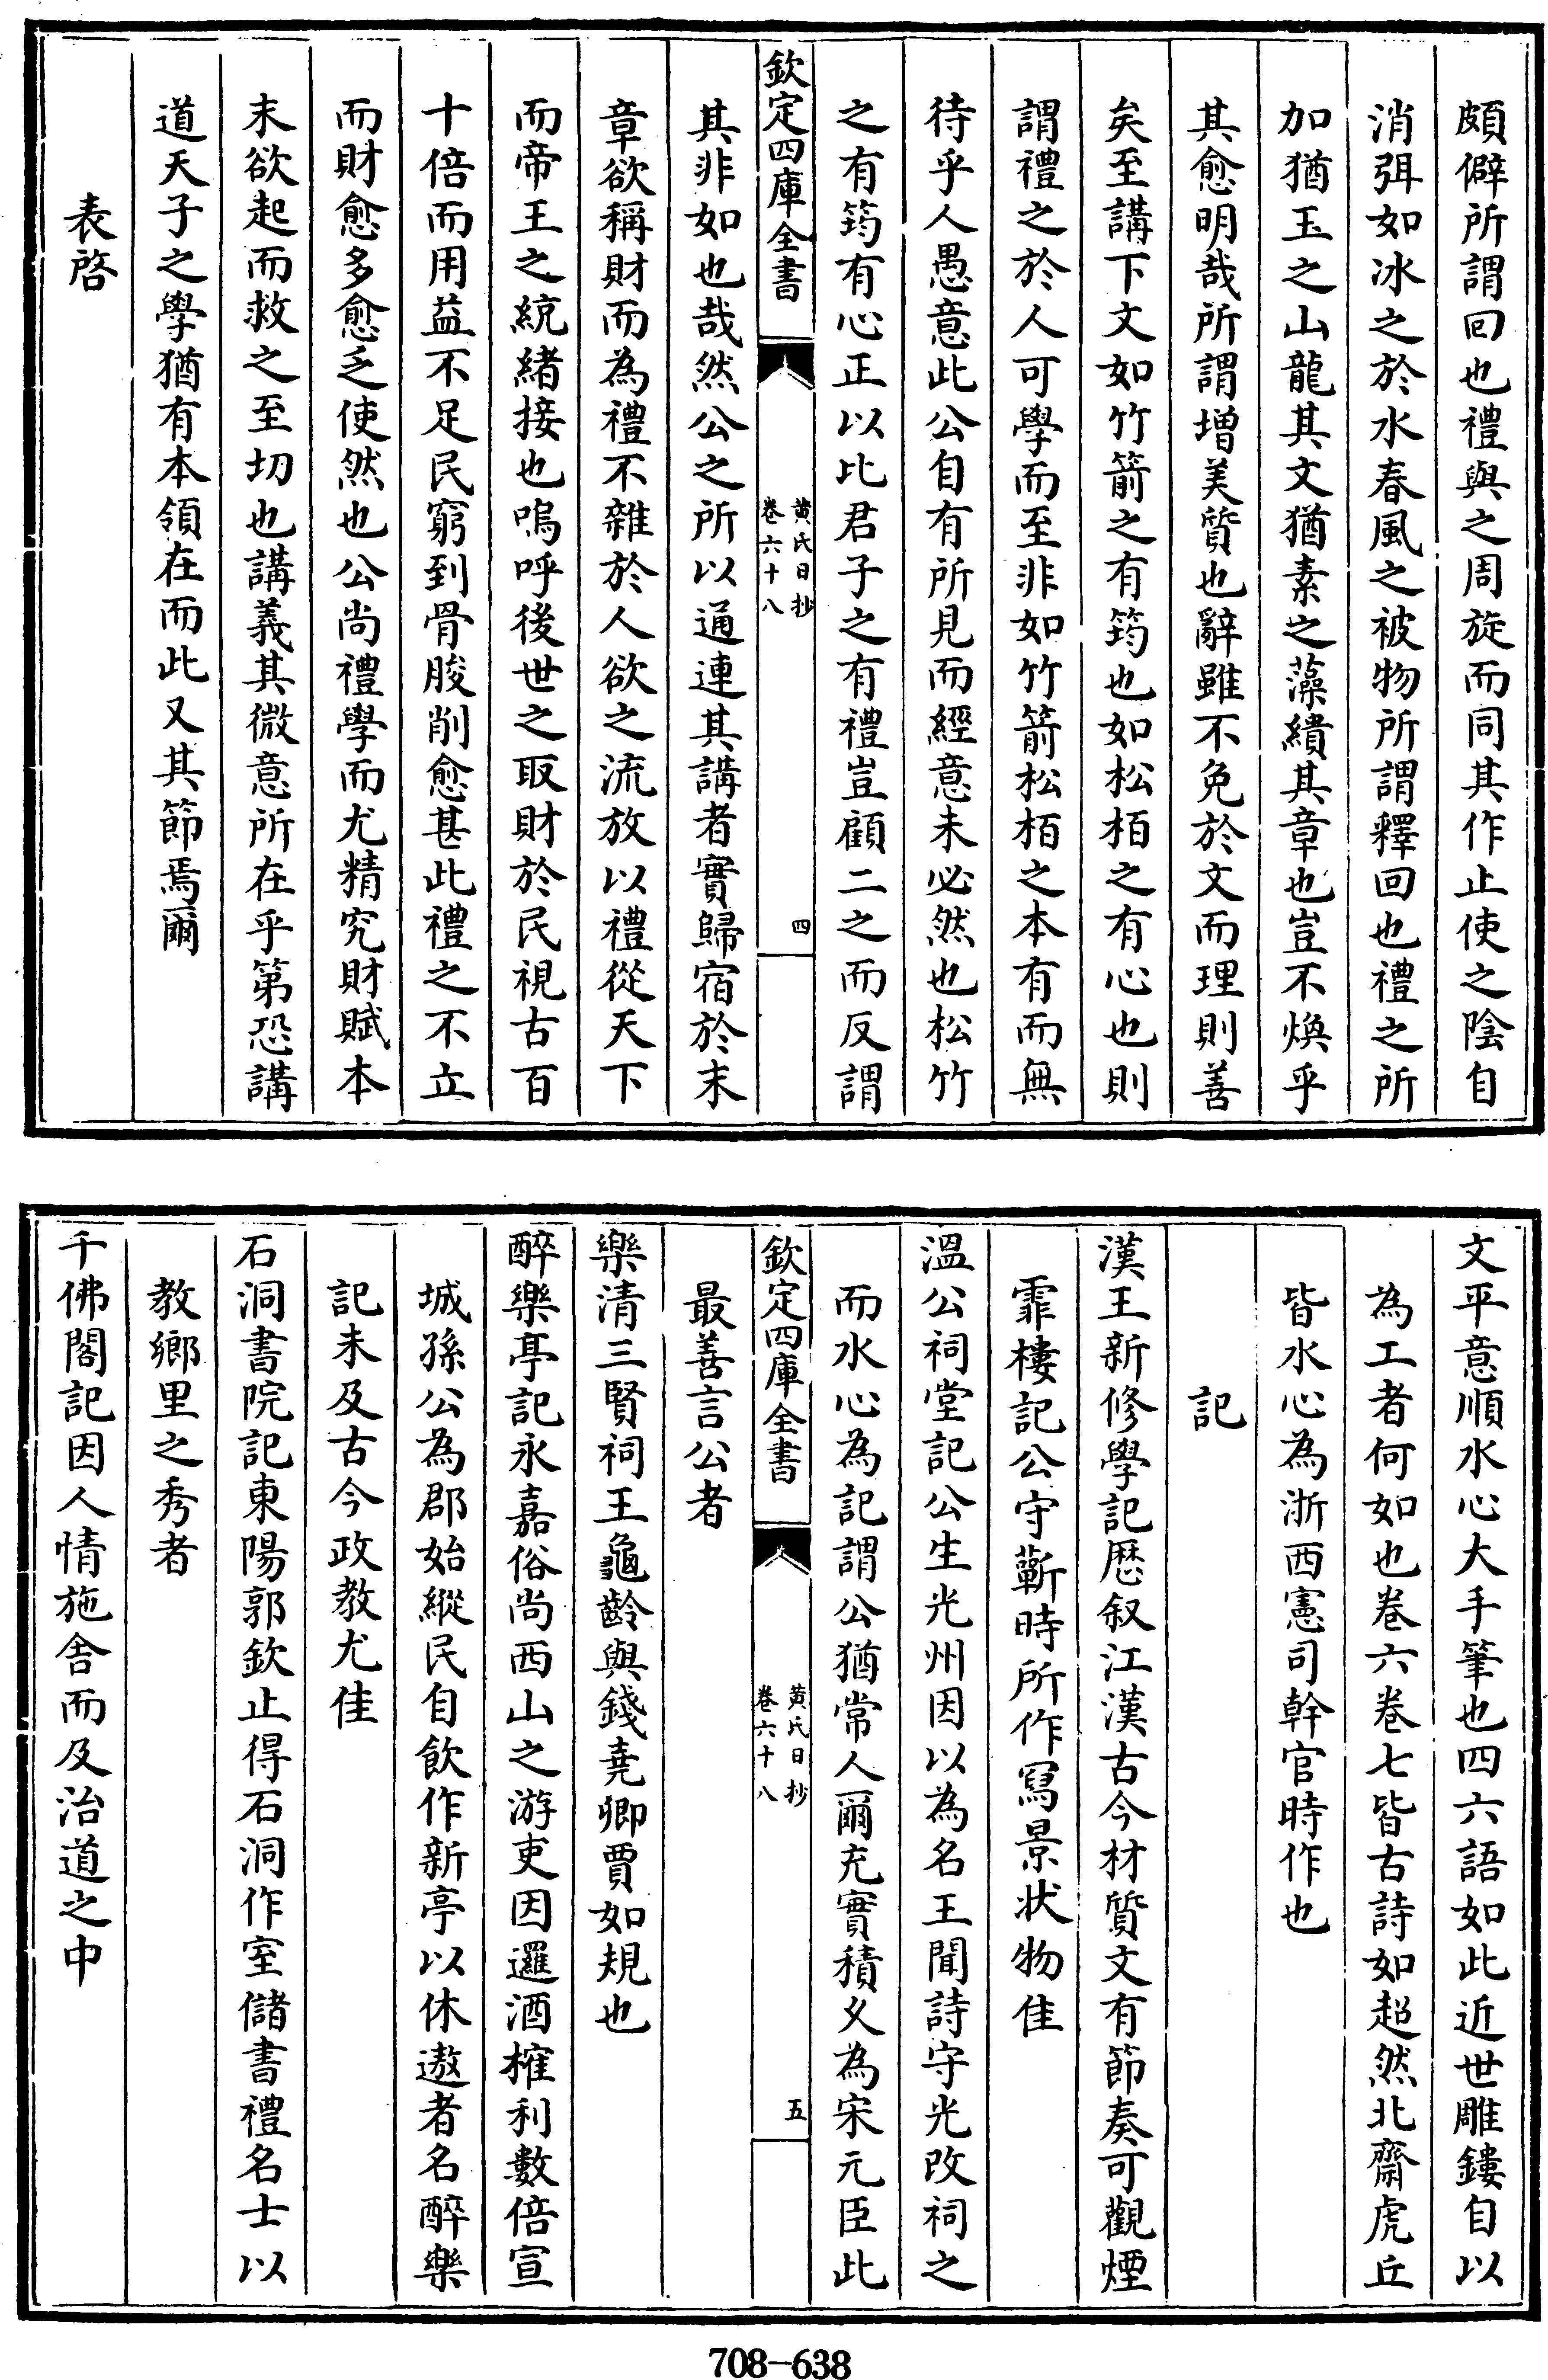 頗僻所謂回也禮與之周旋而同其作止使之陰自
消弭如冰之於水春風之被物所謂釋回也禮之所
加猶玉之山龍其文猶素之藻繢其章也豈不煥乎
其愈明哉所謂增美質也辭雖不免於文而理則善
矣至講下文如竹箭之有筠也如松栢之有心也則
謂禮之於人可學而至非如竹箭松栢之本有而無
待乎人愚意此公自有所見而經意未必然也松竹
之有筠有心正以比君子之有禮豈顧二之而反謂
欽定四庫全書
黄氏日抄
卷六十八
四
其非如也哉然公之所以通連其講者實歸宿於末
章欲稱財而為禮不雜於人欲之流放以禮從天下
而帝王之統緒接也嗚呼後世之取財於民視古百
十倍而用益不足民窮到骨朘削愈甚此禮之不立
而財愈多愈乏使然也公尚禮學而尤精究財賦本
末欲起而救之至切也講義其微意所在乎第恐講
道天子之學猶有本領在而此又其節焉爾
表啓
文平意順水心大手筆也四六語如此近世雕鏤自以
為工者何如也卷六卷七皆古詩如超然北齋虎丘
皆水心為浙西憲司幹官時作也
記
漢王新修學記歴叙江漢古今材質文有節奏可觀煙
霏樓記公守蘄時所作寫景狀物佳
溫公祠堂記公生光州因以為名王聞詩守光改祠之
而水心為記謂公猶常人爾充實積久為宋元臣此
欽定四庫全書
黄氏日抄
卷六十八
五
最善言公者
樂清三賢祠王龜齡與錢堯卿賈如規也
醉樂亭記永嘉俗尚西山之游吏因邏酒榷利數倍宣
城孫公為郡始縱民自飲作新亭以休遨者名醉樂
記末及古今政教尤佳
石洞書院記東陽郭欽止得石洞作室儲書禮名士以
教鄉里之秀者
千佛閣記因人情施舍而及治道之中
708-638